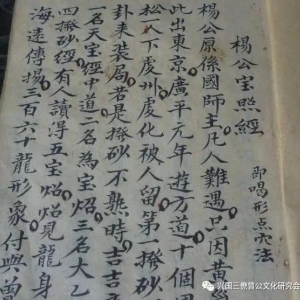 楊公宝照經 即唱形点穴法
楊公原係國師主凡人難遇只因黄
此出東京廣平元年遊方道十個
松一下虔州虔化被人留第一撥砂
卦来装局若是撥砂不熟時吉吉
一名天宝經中道二名為宝照三名大乙
四撥砂經有人讀得五宝炤炤見龍身
海遠傳揚三百六十龍形象付與曾
兴国三僚曾公文化研究会